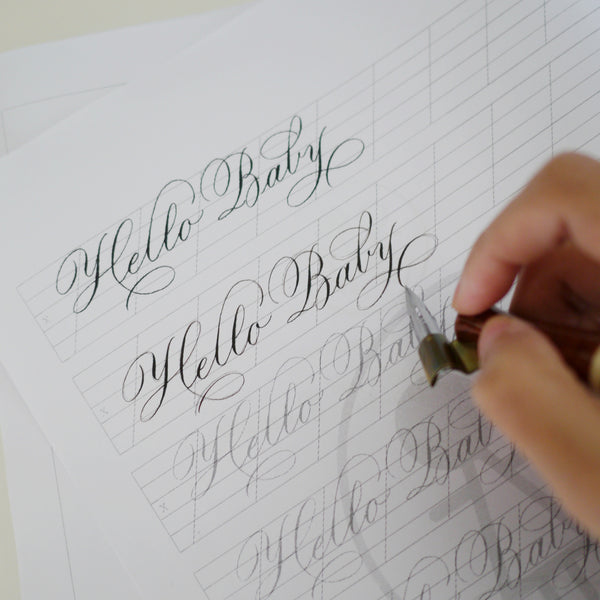 Hello Baby
Hello Baby
Hello Baby
Hello Baby
Baby